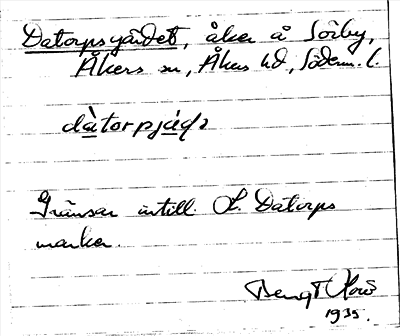 Datorpsgärdet, åker å Sörby,
Åkers sn, Åkers hd, Söderm. l.
dàtorpjä̀ḍ2
Gränsar intill L. Datorps
marker.
Bengt
1935.